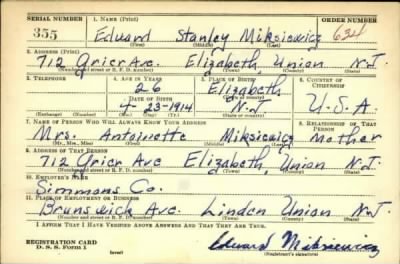 SERIAL NUMBER 1. NAME (Print) ORDER NUMBER
355 Edward Stanley Miksiewicz 634
(First) (Middle) (Last)
2. ADDRESS (Print)
712 Grier Ave. Elizabeth, Union N.J.
(Number and street or R. F. D. number) (Town) (County) (State)
3. TELEPHONE 4. AGE IN YEARS 5. PLACE OF BIRTH 6. COUNTRY OF CITIZENSHIP
26 Elizabeth
DATE OF BIRTH (Town or county)
4-23-1914 N.J. U.S.A.
(Exchange) (Number) (Mo.) (Day) (Yr.) (State or country)
7. NAME OF PERSON WHO WILL ALWAYS KNOW YOUR ADDRESS 8. RELATIONSHIP OF THAT PERSON
Mrs. Antoinette Miksiewicz Mother
(Mr., Mrs., Miss) (First) (Middle) (Last)
9. ADDRESS OF THAT PERSON
712 Grier Ave Elizabeth, Union N.J.
(Number and street or R. F. D. number) (Town) (County) (State)
10. EMPLOYER'S NAME
Simmons Co.
11. PLACE OF EMPLOYMENT OR BUSINESS
Brunswick Ave. Linden Union N.J.
(Number and street or R. F. D. number) (Town) (County) (State)
I AFFIRM THAT I HAVE VERIFIED ABOVE ANSWERS AND THAT THEY ARE TRUE.
REGISTRATION CARD
D. S. S. Form 1 Edward Miksiewicz
(over) (Registrant's signature)